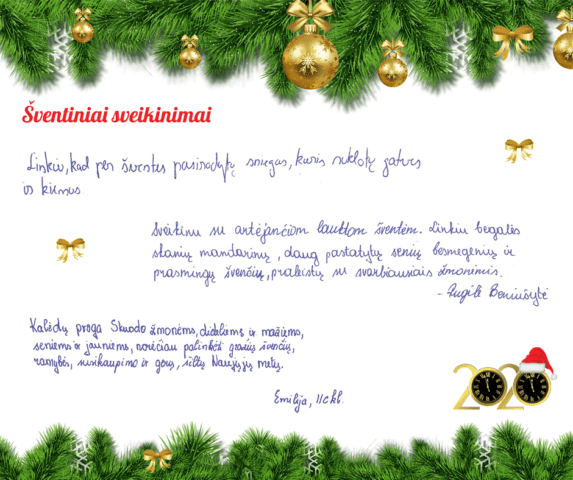 Šventiniai sveikinimai
Linkiu, kad per šventes pasirodytų sniegas, kuris uklotų gatves
ir kiemus.
Sveikinu su artėjančiom lauktom šventėm. Linkiu begalės
skanių mandarinų, daug pastatytų senių besmegenių ir
prasmingų švenčių, praleistų su svarbiausiais žmonėmis.
- Augilė Beniušytė
Kalėdų proga Skuodo žmonėms, dideliems ir mažiems,
seniems ir jauniems, norėčiau palinkėti gražių švenčių,
ramybės, susikaupimo ir gerų, šiltų Naujųjų metų.
Emilija, 11c kl.
2020